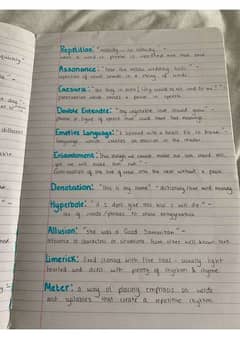 Repetition: "nobody, no nobody" -
when a word or phrase is repeated more than once
Assonance: "hear the mellow wedding bells" -
repetition of vowel sounds in a string of words
Caesura:
punctuation which causes a pause in speech
Double Entendre: "My vegetable love should grow" -
phrase or figure of speech that could have two meanings
Emotive Language:
language which creates an emotion in the reader
Enjambment: "Thus though we cannot make our sun stand still,
yet we will make him run" -
Continuation of one line of verse into the next without a pause
Denotation: "This is my home" - dictionary/true word meaning
Hyperbole: "if I don't give this kiss I will die" -
use of words/phrases to show exaggeration
Allusion: "She was a Good Samaritan" -
reference to characters or situations from other well known text
Limerick: fixed stanzas with five lines - usually light
hearted and deals with plenty of rhythm & rhyme
Meter: a way of placing emphasis on words
and syllables that create a repetitive rhythm